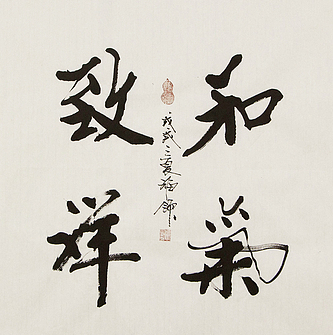 和氣
致祥
戊戌三夏